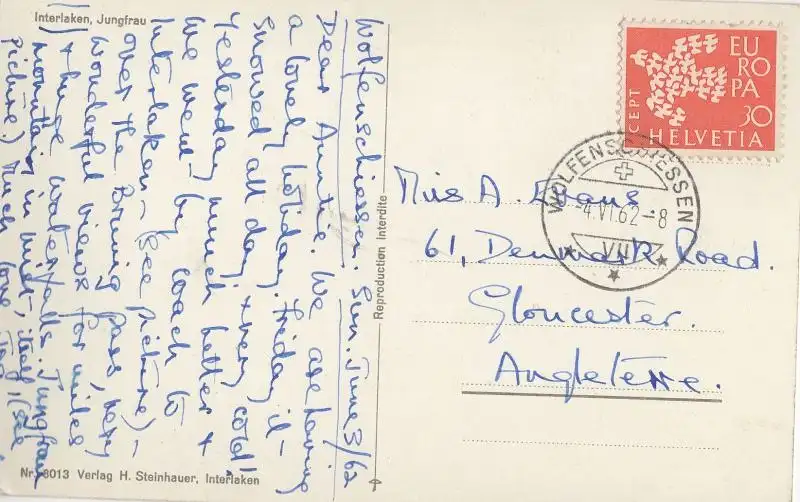 Interlaken, Jungfrau
Wolfenschiessen. Sun. June 3/62
Dear Auntie. We are having
a lovely holiday. Friday it
snowed all day, & very cold!
Yesterday much better &
we went by coach to
Interlaken (see picture) –
over the Brünig Pass, very
wonderful views for miles
& huge waterfalls. Jungfrau
mountain in mist, itself (see
picture) Much love
Nr. 8013 Verlag H. Steinhauer, Interlaken
Reproduction Interdite
EUROPA
CEPT
30
HELVETIA
WOLFENSCHIESSEN
-4.VI.62-8
VII
Miss A. Evans
61, Denmark Road.
Gloucester.
Angleterre.